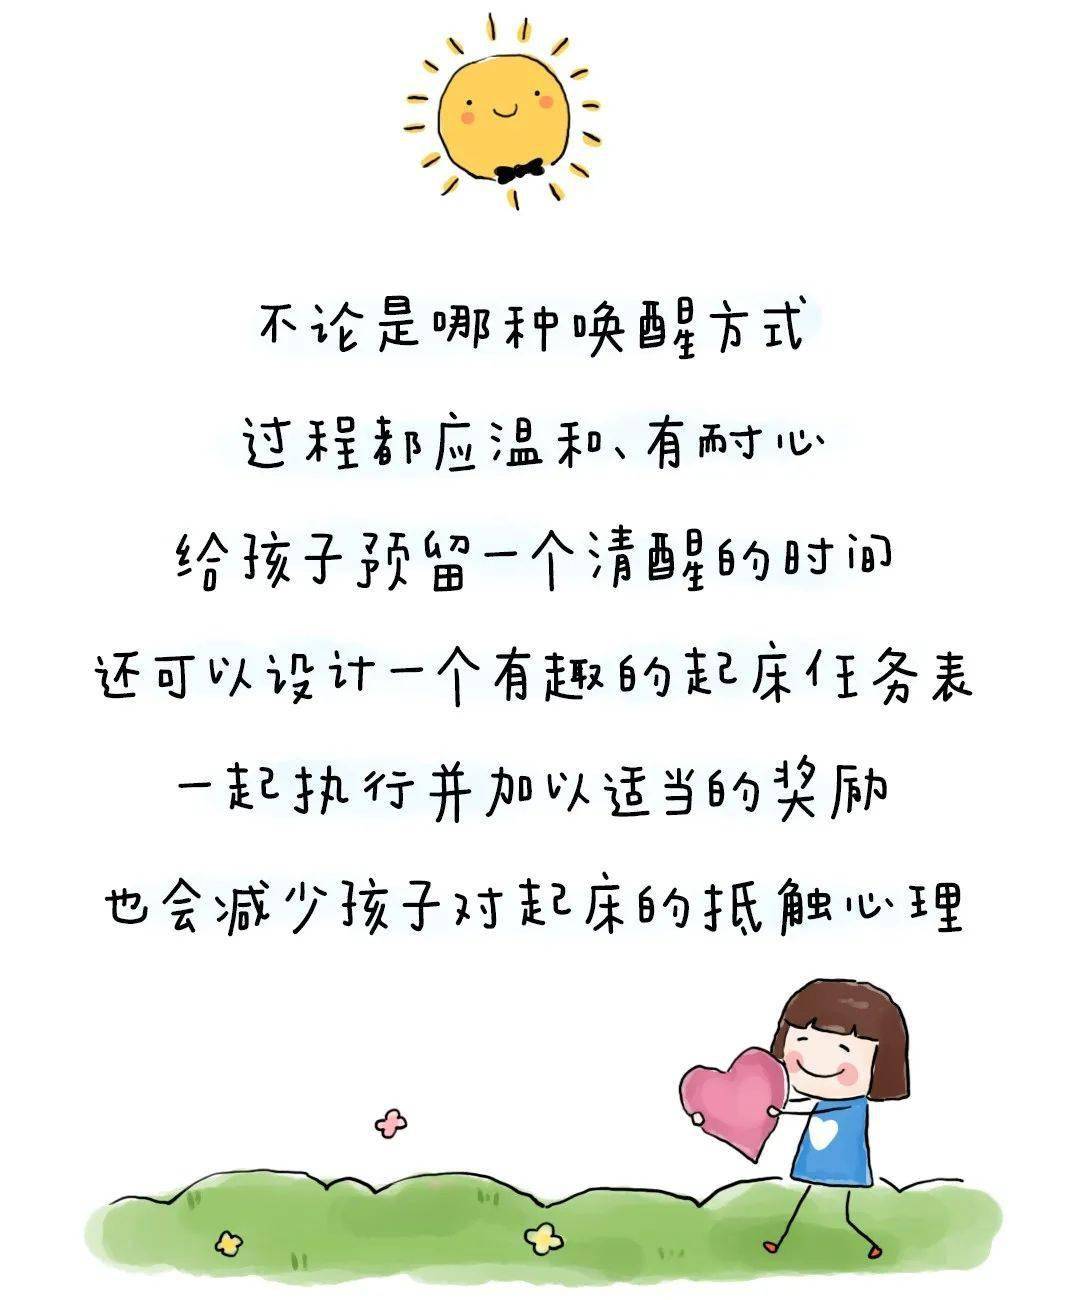 不论是哪种唤醒方式
过程都应温和、有耐心
给孩子预留一个清醒的时间
还可以设计一个有趣的起床任务表
一起执行并加以适当的奖励
也会减少孩子对起床的抵触心理